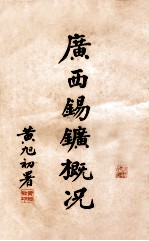 廣西錫鑛概況
黃旭初署